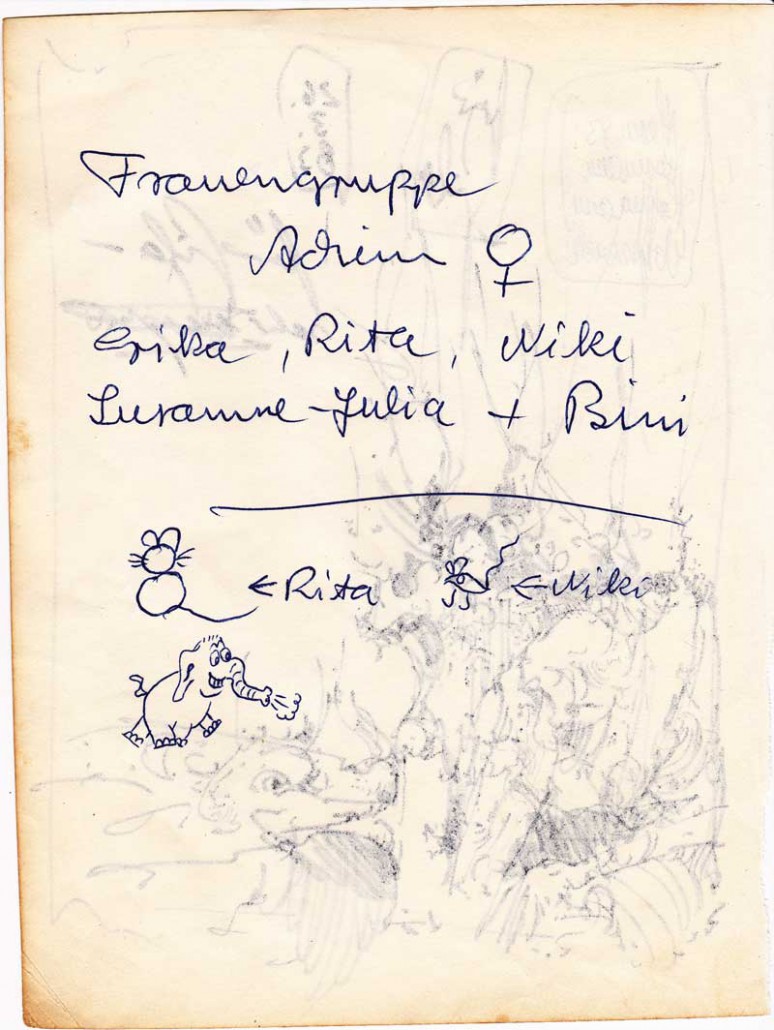 Frauengruppe
♀
Erika, Rita, Niki
Susanne-Julia + Bini
← Rita ← Niki
26.
3.
83